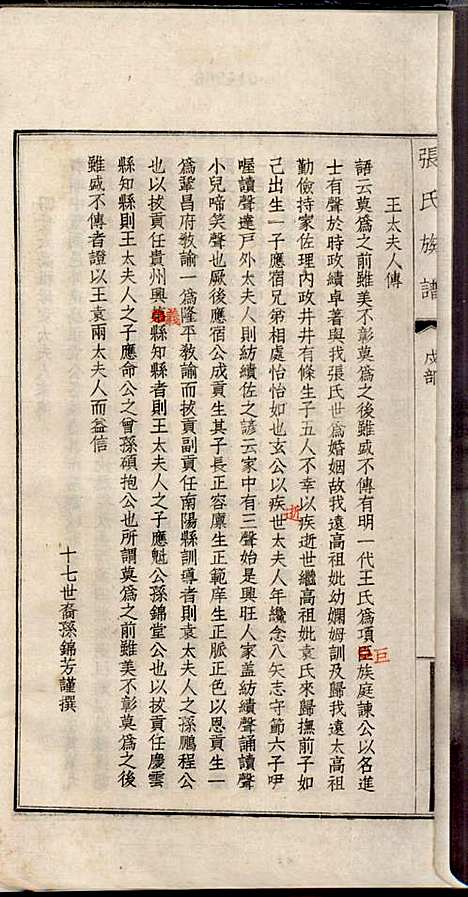 張氏族譜
戍部
王太夫人傳
語云莫爲之前雖美不彰莫爲之後雖盛不傳有明一代王氏爲項巨族庭諫公以名進
巨
士有聲於時政績卓著與我張氏世爲婚姻故我遠高祖妣幼嫻姆訓及歸我遠太高祖
勤儉持家佐理內政井井有條生子五人不幸以疾逝世繼高祖妣袁氏來歸撫前子如
己出生一子應宿兄弟相處怡怡如也玄公以疾世太夫人年纔念八矢志守節六子咿
逝
喔讀聲達戶外太夫人則紡績佐之諺云家中有三聲始是興旺人家盖紡績聲誦讀聲
小兒啼笑聲也厥後應宿公成貢生其子長正容廪生正範庠生正脈正色以恩貢生一
爲鞏昌府敎諭一爲隆平敎諭而拔貢副貢任南陽縣訓導者則袁太夫人之孫鵬程公
也以拔貢任貴州興縣知縣者則王太夫人之子應魁公孫錦堂公也以拔貢任慶雲
義
縣知縣則王太夫人之子應命公之曾孫碩抱公也所謂莫爲之前雖美不彰莫爲之後
雖盛不傳者證以王袁兩太夫人而益信
十七世裔孫錦芳謹撰